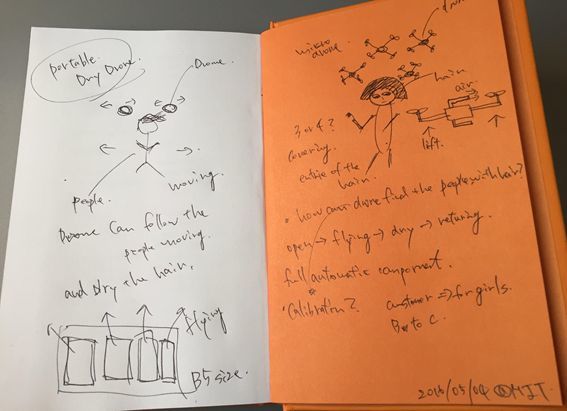 portable.
Dry Drone.
Drone.
people.
moving.
Drone can follow the
people moving.
and dry the hair.
flying
B5 size.
drone
mikro
drone.
hair
air
3 or 4?
covering
entire of the
hair.
lift.
• how can drone find the people with hair?
open → flying → dry → returing.
full automatic component.
• Calibration?
customer ⇒ for girls.
B to C.
2016/05/04 @MIT